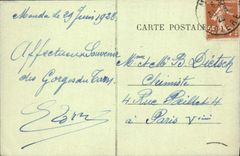 Mende le 29 Juin 1928.
CARTE POSTALE
Affectueux Souvenir
des Gorges du Tarn.
Mme et Mr B. Dietsch
Chimiste
4 Rue Paillet 4
à Paris Vème